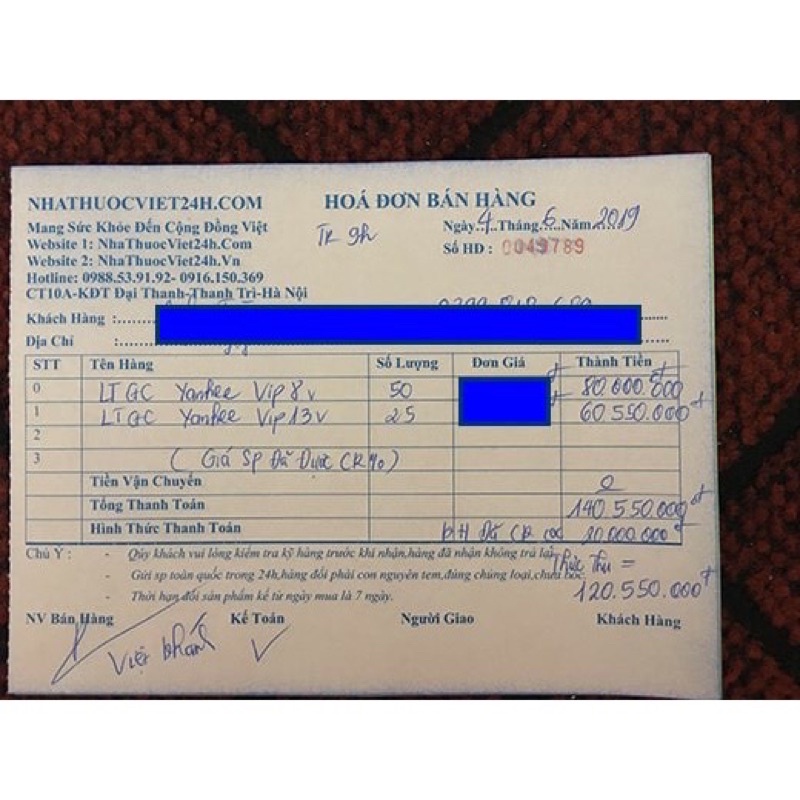 NHATHUOCVIET24H.COM HOÁ ĐƠN BÁN HÀNG
Mang Sức Khỏe Đến Cộng Đồng Việt Ngày 4 Tháng 6 Năm 2019
Website 1: NhaThuocViet24h.Com TK 9h Số HD : 0049789
Website 2: NhaThuocViet24h.Vn
Hotline: 0988.53.91.92- 0916.150.369
CT10A-KĐT Đại Thanh-Thanh Trì-Hà Nội
Khách Hàng :
Địa Chỉ :
STT Tên Hàng Số Lượng Đơn Giá Thành Tiền
0 LT GC Yankee Vip 8v 50 80.000.000đ
1 LT GC Yankee Vip 13v 25 60.550.000đ
2
3 ( Giá SP Đã Được CK %)
Tiền Vận Chuyển 0
Tổng Thanh Toán 140.550.000đ
Hình Thức Thanh Toán Đã CK cọc 20.000.000đ
Chú Ý : - Qúy khách vui lòng kiểm tra kỹ hàng trước khi nhận,hàng đã nhận không trả lại
- Gửi sp toàn quốc trong 24h,hàng đổi phải con nguyên tem,đúng chủng loại,chưa bóc. Thực Thu =
- Thời hạn đổi sản phẩm kể từ ngày mua là 7 ngày. 120.550.000đ
NV Bán Hàng Kế Toán Người Giao Khách Hàng
Việt Khánh